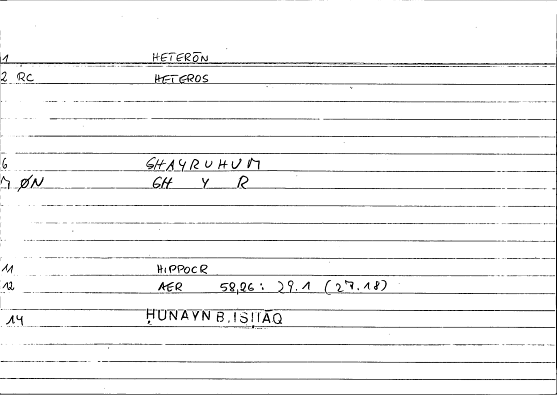 1 HETERŌN
2 RC HETEROS
6 GHAYRUHUM
7 ØN GH Y R
11 HIPPOCR
12 AER 58,26: 29.1 (27.18)
14 ḤUNAYN B. ISḤĀQ